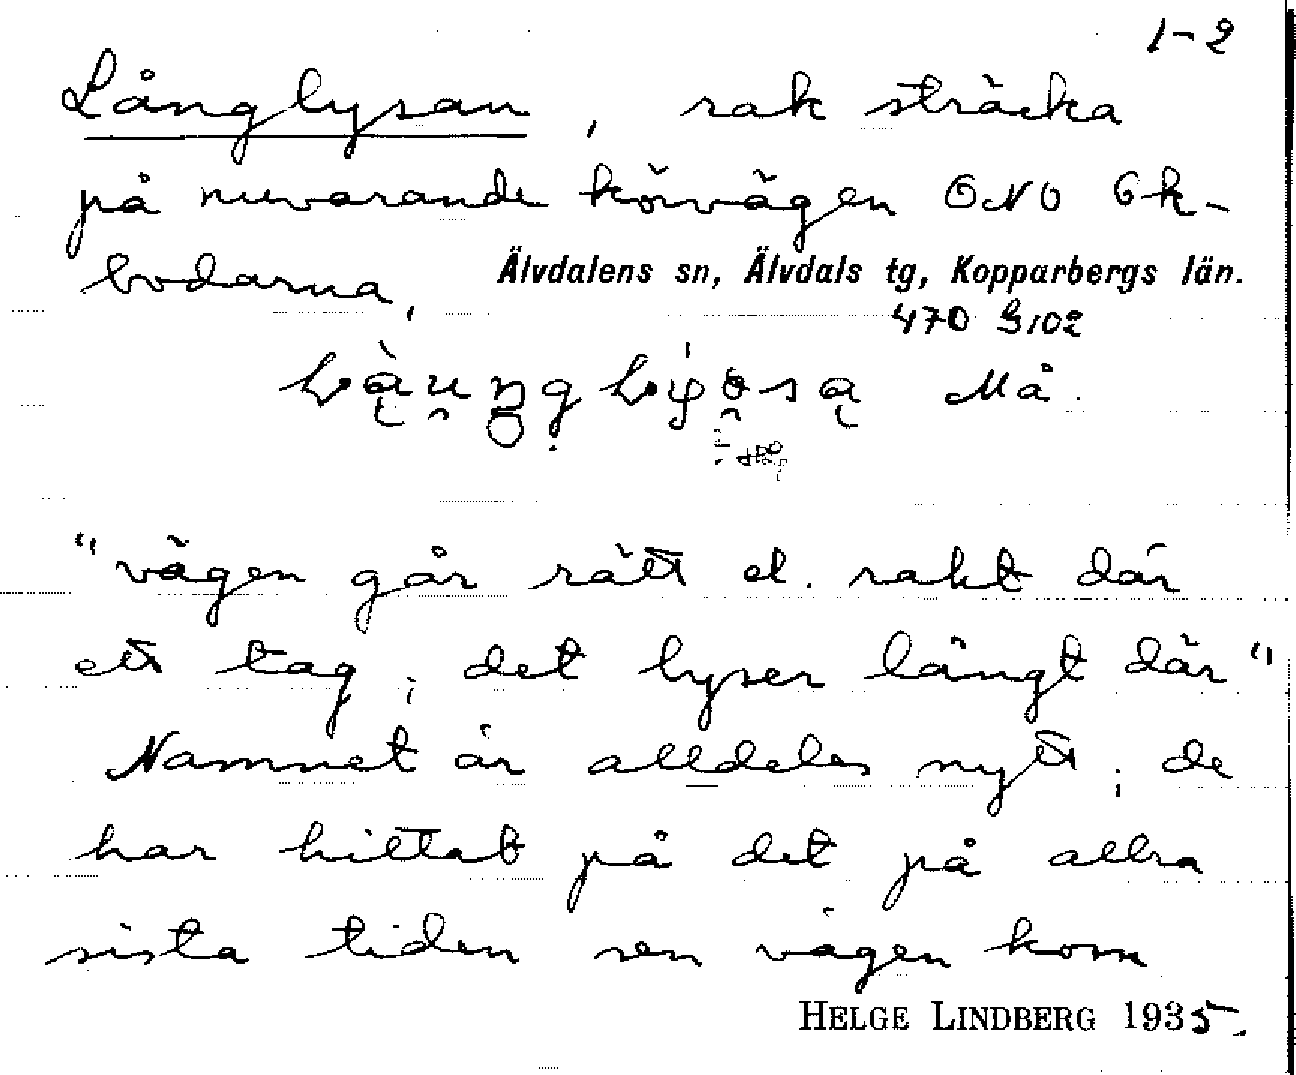 1-2
Långlysan, rak sträcka
på nuvarande körvägen ONO Ok-
bodarna,
Älvdalens sn, Älvdals tg, Kopparbergs län.
470 G102
Må.
"vägen går rätt el. rakt där
ett tag; det lyser långt där"
Namnet är alldeles nytt; de
har hittat på det på allra
sista tiden sen vägen kom
HELGE LINDBERG 1935.